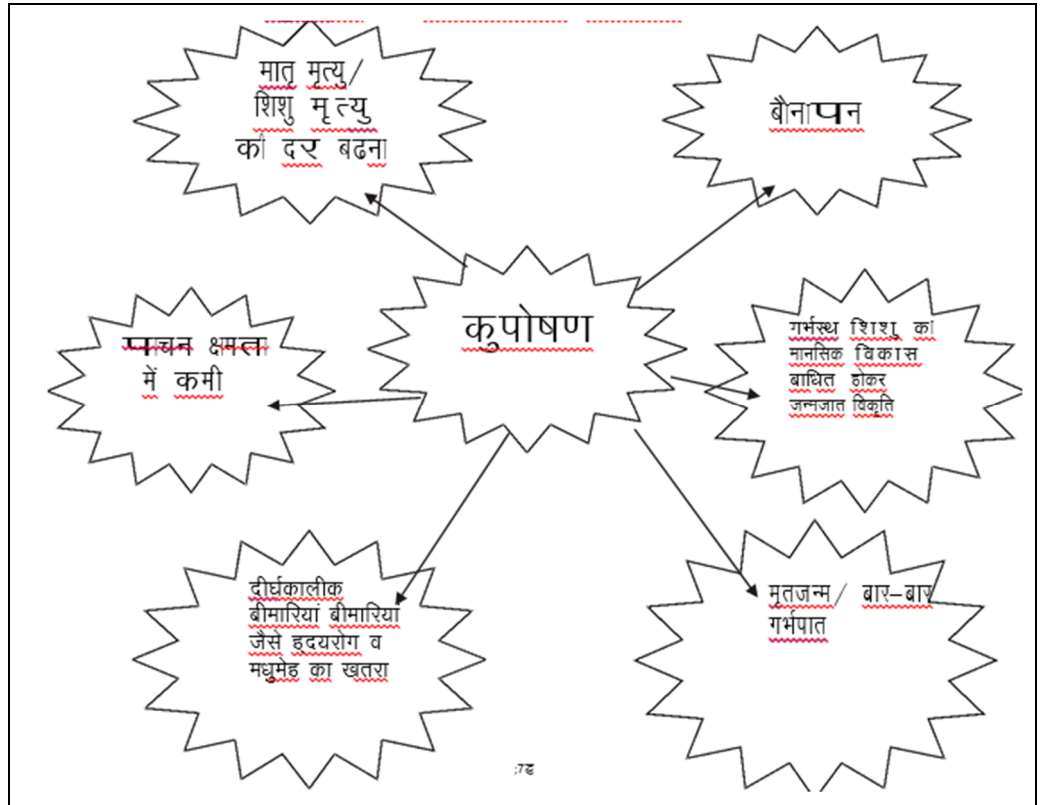 मातृ मृत्यु/
शिशु मृत्यु
की दर बढना
बौनापन
कुपोषण
पाचन क्षमता
में कमी
गर्भस्थ शिशु का
मानसिक विकास
बाधित होकर
जन्मजात विकृति
दीर्घकालीक
बीमारियां बीमारियां
जैसे हृदयरोग व
मधुमेह का खतरा
मृतजन्म/ बार–बार
गर्भपात